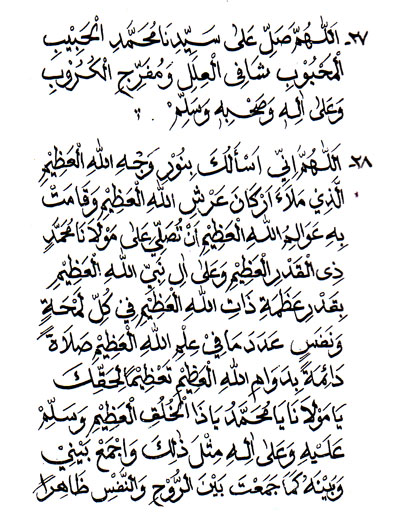 ٢٧ـ اَللّٰهُمَّ صَلِّ عَلٰى سَيِّدِنَا مُحَمَّدِ الْحَبِيْبِ
الْمَحْبُوْبِ شَافِى الْعِلَلِ وَمُفَرِّجِ الْكُرُوْبِ
وَعَلٰى اٰلِهِ وَصَحْبِهِ وَسَلِّمْ
٢٨ـ اَللّٰهُمَّ اِنِّى اَسْأَلُكَ بِنُوْرِ وَجْهِ اللهِ الْعَظِيْمِ
الَّذِيْ مَلَاَءَ اَرْكَانَ عَرْشِ اللهِ الْعَظِيْمِ وَقَامَتْ
بِهِ عَوَالِمُ اللهِ الْعَظِيْمِ اَنْ تُصَلِّيَ عَلٰى مَوْلَانَا مُحَمَّدٍ
ذِى الْقَدْرِ الْعَظِيْمِ وَعَلٰى اٰلِ نَبِيِّ اللهِ الْعَظِيْمِ
بِقَدْرِ عَظَمَةِ ذَاتِ اللهِ الْعَظِيْمِ فِى كُلِّ لَمْحَةٍ
وَنَفَسٍ عَدَدَ مَا فِيْ عِلْمِ اللهِ الْعَظِيْمِ صَلَاةً
دَائِمَةً بِدَوَامِ اللهِ الْعَظِيْمِ تَعْظِيْمًا لِحَقِّكَ
يَا مَوْلَانَا يَا مُحَمَّدُ يَا ذَا الْخُلُقِ الْعَظِيْمِ وَسَلِّمْ
عَلَيْهِ وَعَلٰى اٰلِهِ مِثْلَ ذٰلِكَ وَاجْمَعْ بَيْنِيْ
وَبَيْنَهُ كَمَا جَمَعْتَ بَيْنَ الرُّوْحِ وَالنَّفْسِ ظَاهِرًا